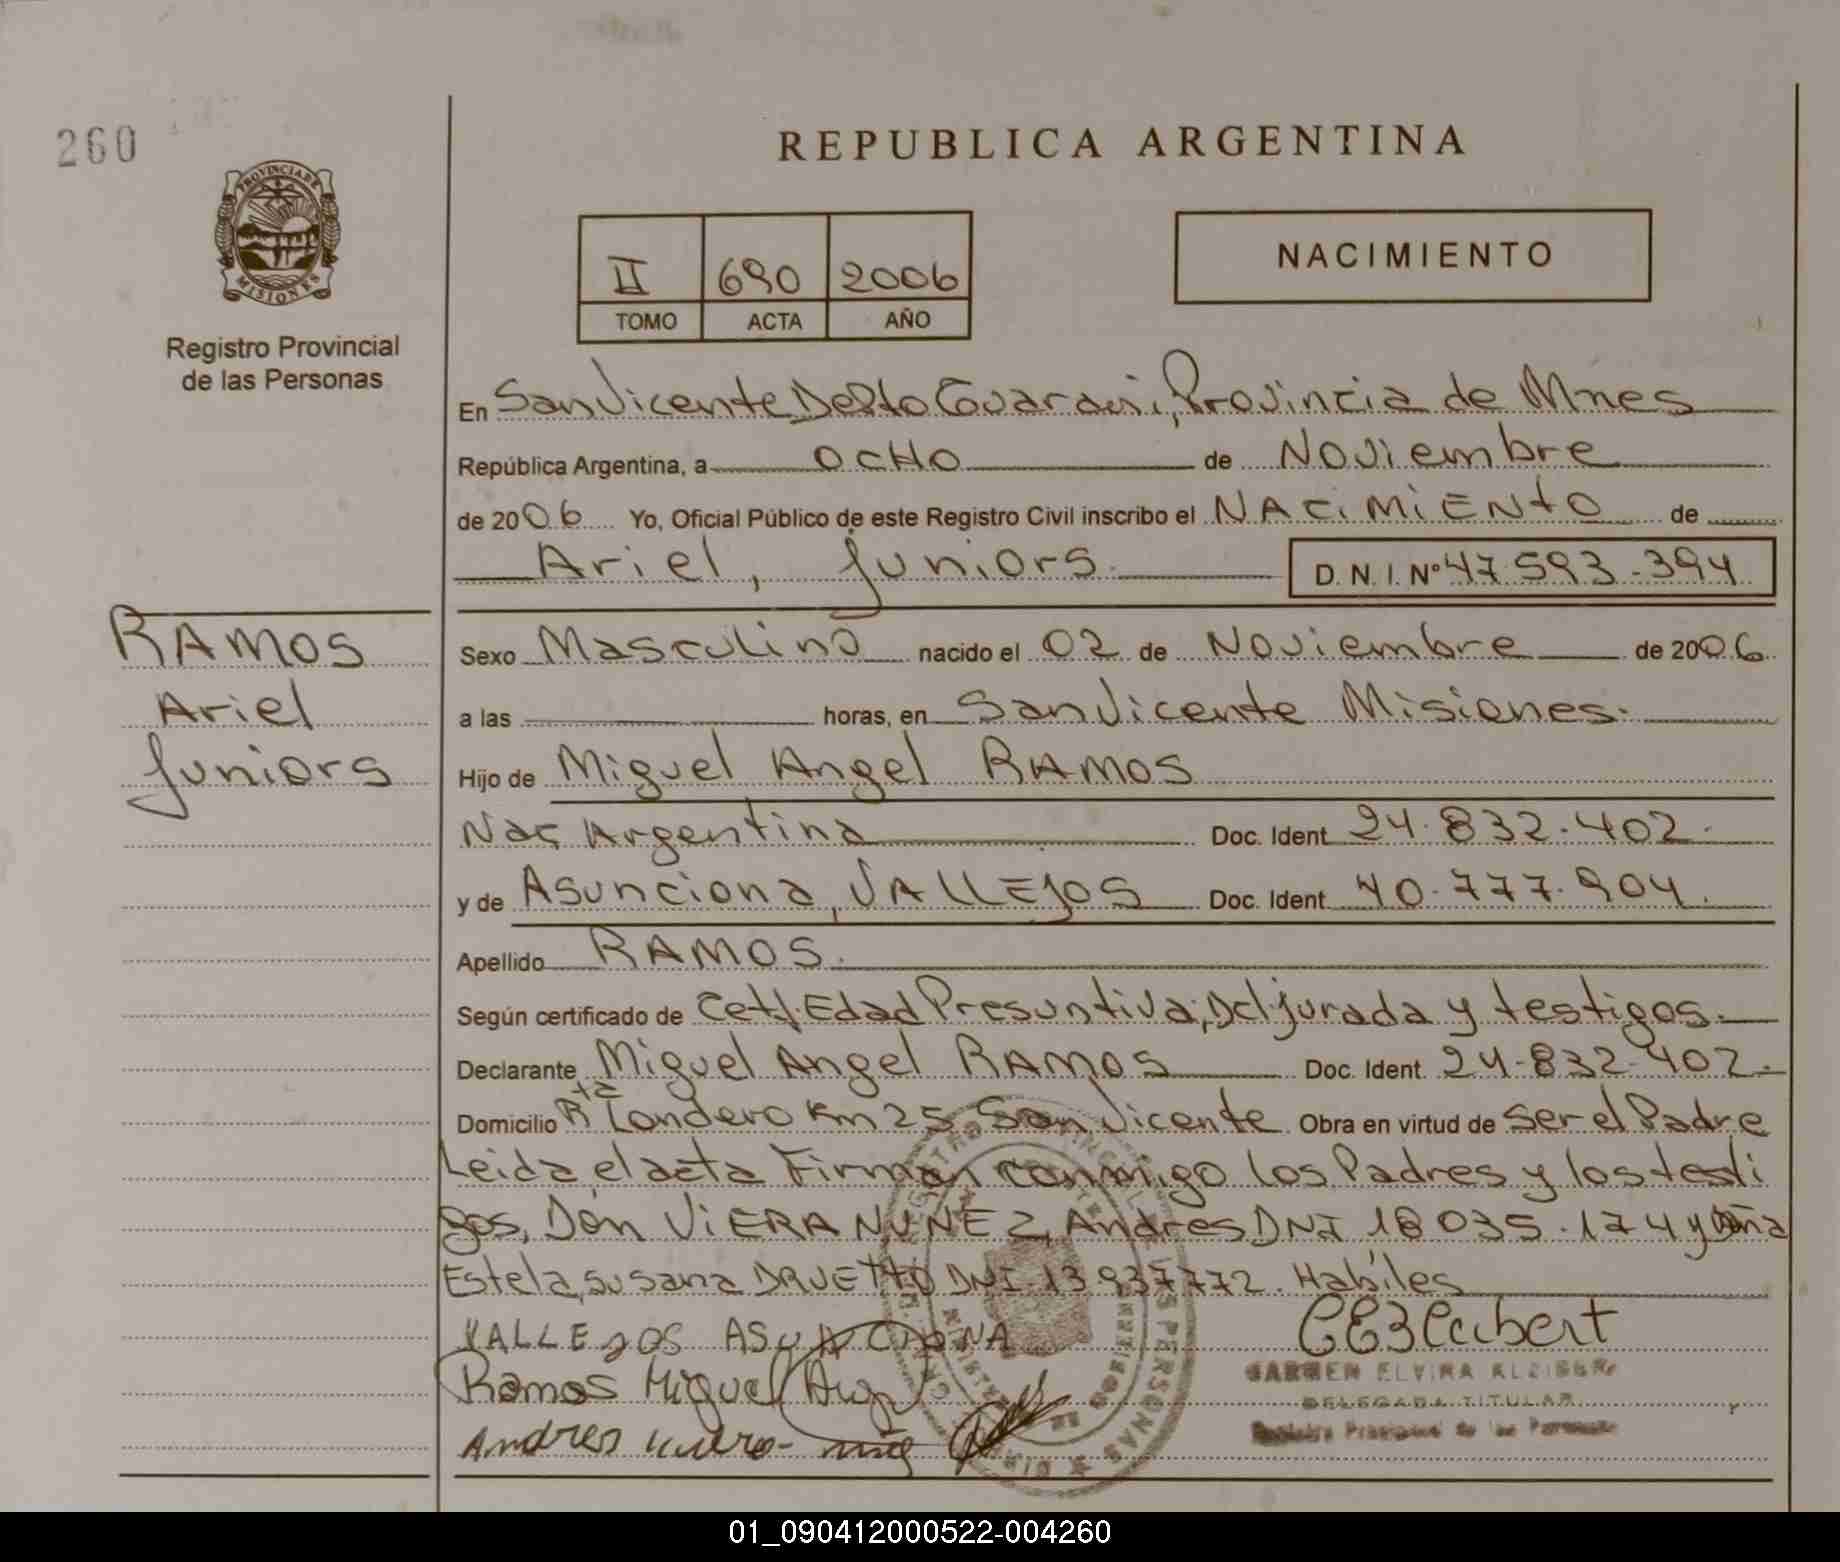 260
REPUBLICA ARGENTINA
PROVINCIA DE
MISIONES
Registro Provincial
de las Personas
II 690 2006
TOMO ACTA AÑO
NACIMIENTO
En San Vicente Depto Guarani, Provincia de Mnes
República Argentina, a OCHO de Noviembre
de 2006 Yo, Oficial Público de este Registro Civil inscribo el NACIMIENTO de
Ariel, Juniors. D.N.I. Nº 47.593.394
RAMOS
Ariel
Juniors
Sexo Masculino nacido el 02 de Noviembre de 2006
a las horas, en San Vicente Misiones.
Hijo de Miguel Angel RAMOS
Nac Argentina Doc. Ident. 24.832.402.
y de Asunciona, VALLEJOS Doc. Ident. 40.777.904.
Apellido RAMOS.
Según certificado de Cetf. Edad Presuntiva, Dcl jurada y testigos.
Declarante Miguel Angel RAMOS Doc. Ident. 24.832.402.
Domicilio Rta Londero Km 25 San Vicente Obra en virtud de ser el Padre
Leida el acta Firman conmigo los Padres y los testi
gos, Don ViERA NUNEZ, Andres DNI 18 035.174 y Doña
Estela, Susana DRUETTO DNI 13 937772. Habiles
VALLEJOS ASUNCIONA
Ramos Miguel Ang
Andres
CARMEN ELVIRA
DELEGADA TITULAR
Registro Provincial de las Personas
01_090412000522-004260